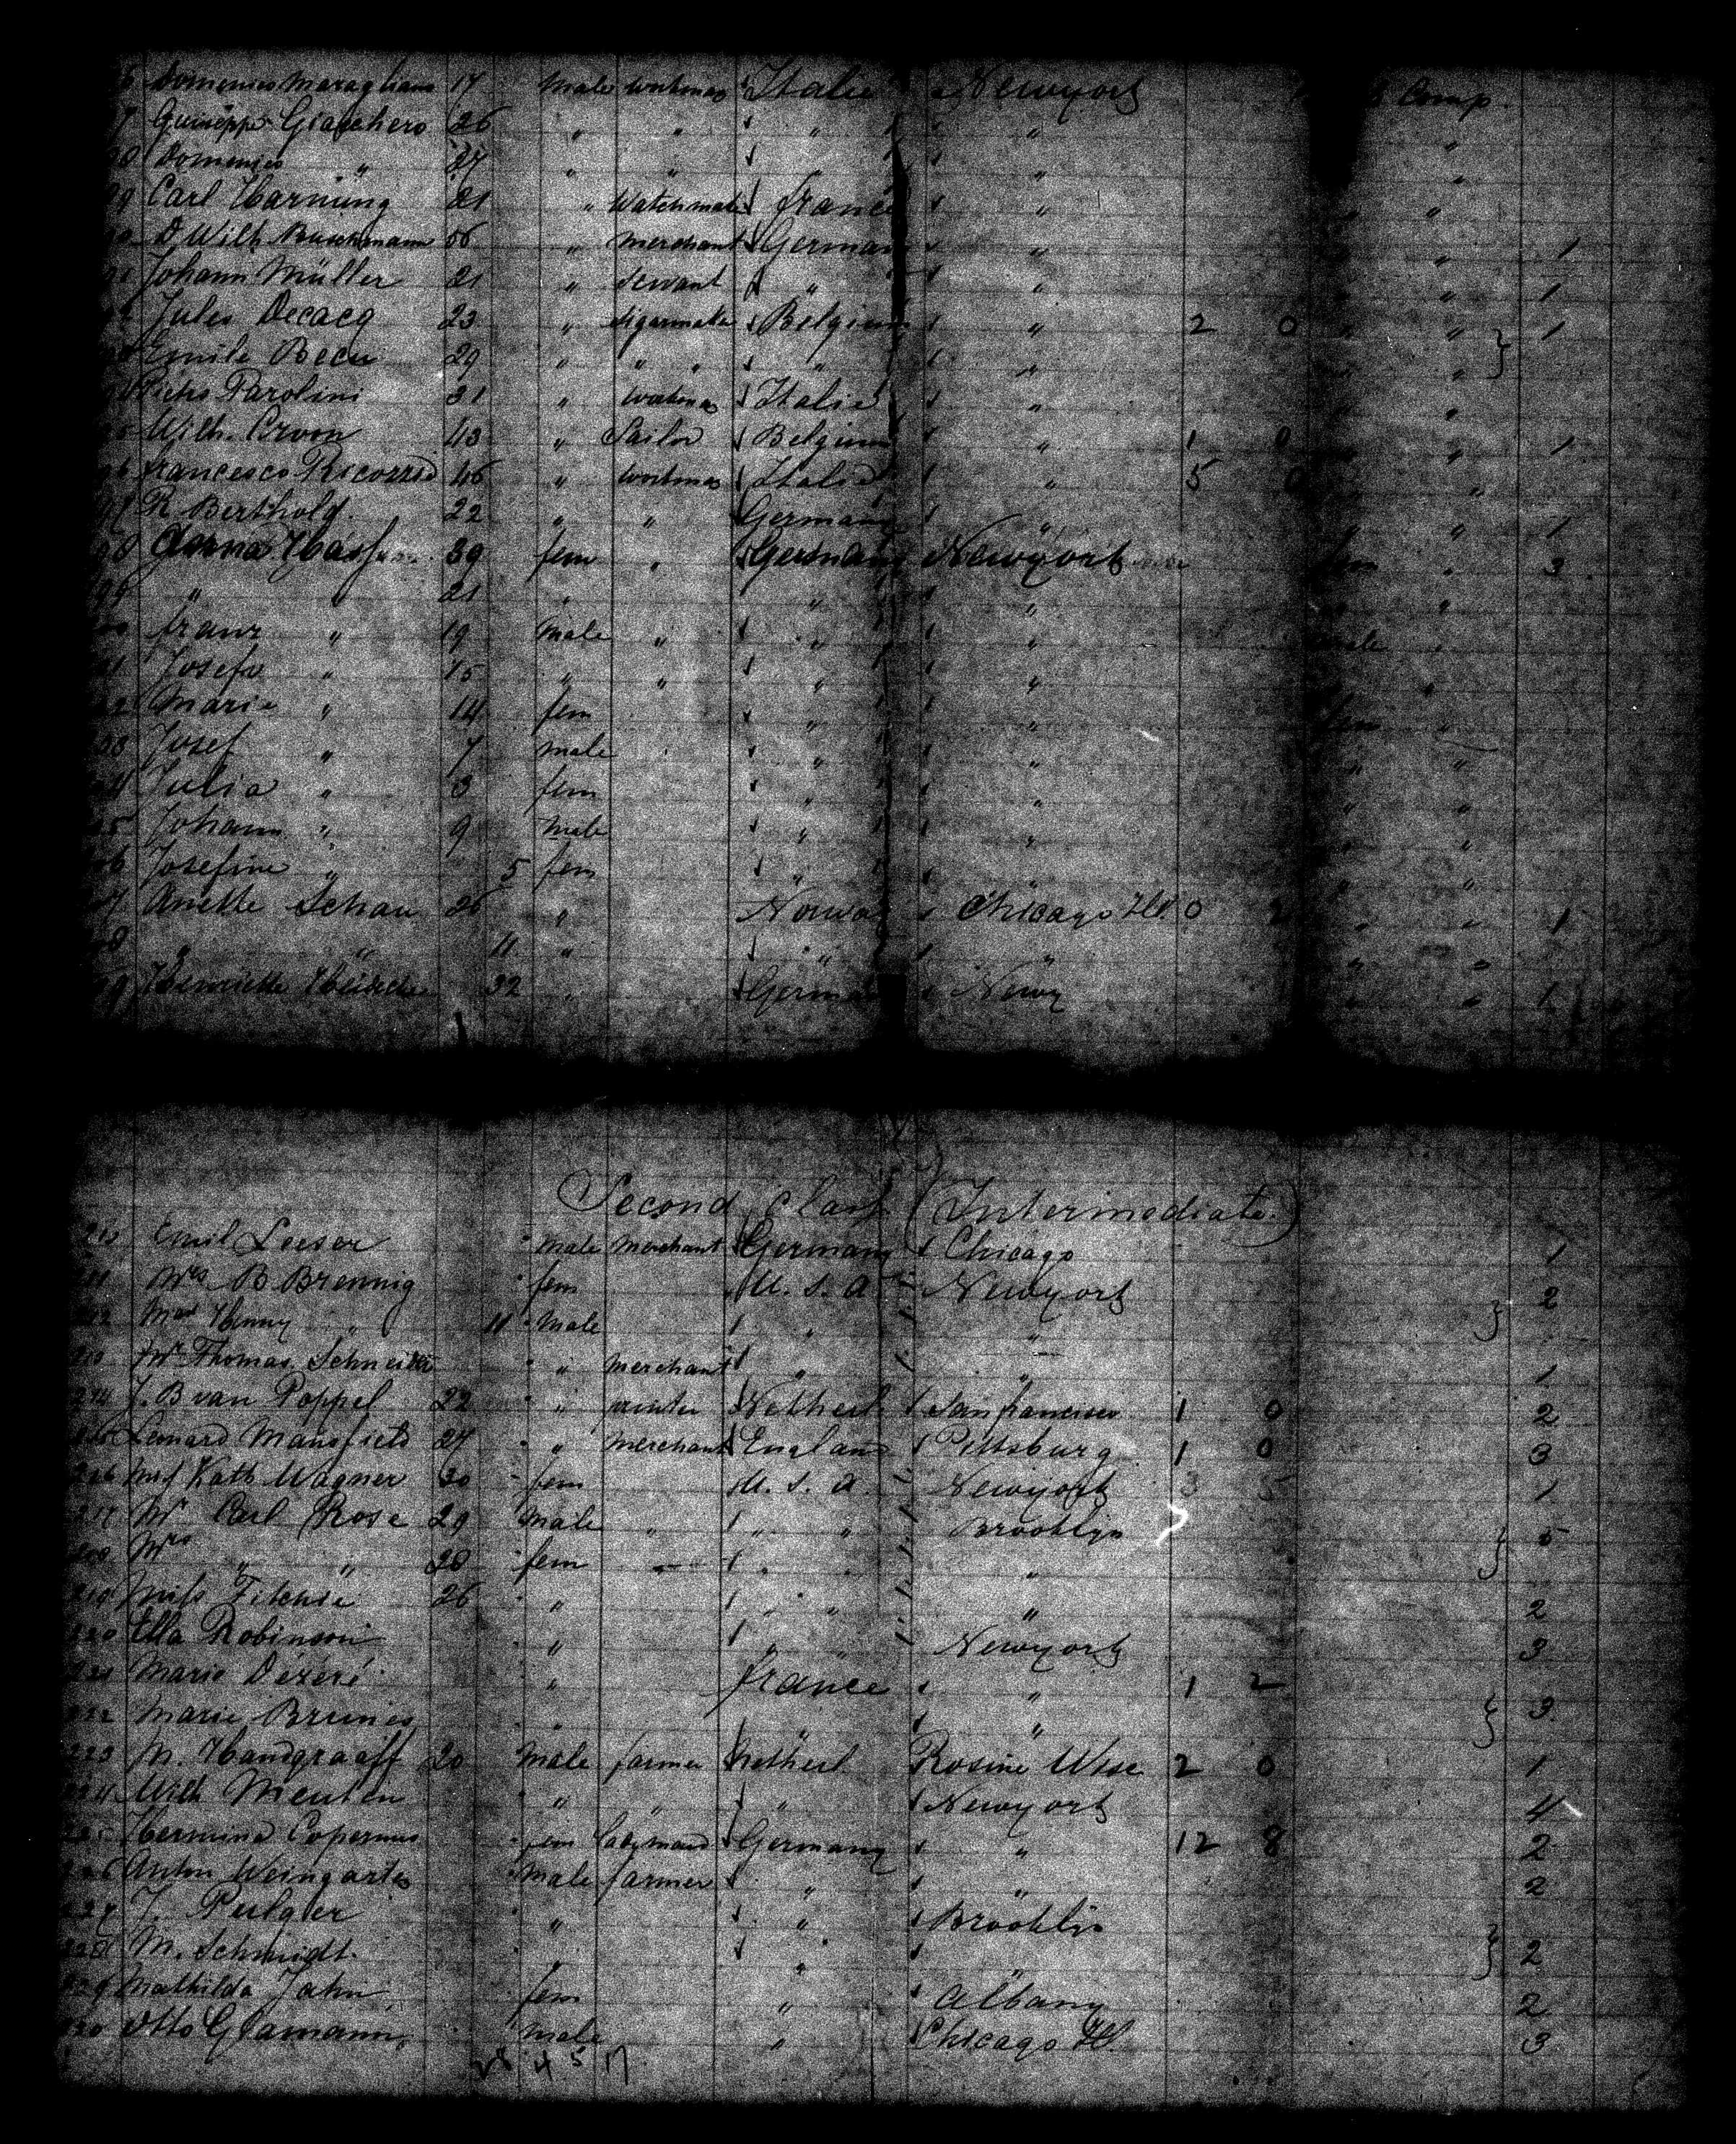 6 Domenico Maragliano 17 Male workman Italie Newyork Comp.
7 Guiseppe Giacchero 26 " " " " "
88 Domenico " 27 " " " "
89 Carl Harnung 21 " Watchmake france " " "
90 D. Wilh Buschmann 56 " Merchant Germany " " 1
91 Johann Müller 21 " Servant " " " 1
92 Jules Decacq 23 " Sigarmaker Belgium " 2 0 " " 1
Emile Becu 29 " " " " " "
Pietro Parolini 31 " workman Italie " " "
Wilh. Croon 43 " Sailor Belgium " 1 0 " 1
96 francesco Ricozzio 46 " workman Italie " 5 0 " "
97 R Berthold 22 " " Germany " " 1
98 Anna 39 fem " Germany Newyork fem " 3
99 " " 21 " " " "
franz " 19 male " " " male "
Josefa " 15 " " " " "
Marie " 14 fem " " fem "
203 Josef " 7 male " " " "
204 Julia " 3 fem " " " "
205 Johann " 9 male " " "
206 Josefine " 5 fem " " " "
207 Anette Schau 26 " Norway Chicago Ill. 0 2 " " 1
208 " " 11 " " " " "
209 Henriette 32 " Germany Newy " " 1
Second Class (Intermediate.)
210 Emil Loeser male Merchant Germany Chicago 1
211 Mrs B Brennig fem U. S. A. Newyork 2
212 Mas Henny " 11 Male " "
213 Mr Thomas Schneider " Merchant " " 1
214 J. B van Poppel 22 " printer Netherl Sanfrancisco 1 0 2
215 Lemard Mansfield 27 " Merchant England Pittsburg 1 0 3
216 Miss Kath Wagner 30 fem U. S. A. Newyork 3 5 1
217 Mr Carl Rose 29 Male " " " Brooklyn 5
218 Mrs " " 28 fem — " " "
219 Miss Fitchie 26 " " " " 2
220 Ella Robinson " " " Newyork 3
221 Marie Dézéré " france " 1 2
222 Marie Brunies " " " 3
223 M. Handgraaff 20 Male farmer Netherl Rosine Wisc 2 0 1
224 Wilh Meuten " " " Newyork 4
225 Hermina Copernus fem Ladysmaid Germany " 12 8 2
226 Anton Weingarten Male farmer " " 2
227 J. Pulger " " Brooklyn
228 M. Schmidt " " " 2
229 Mathilda Jahn fem " Albany 2
230 Otto Glamann Male " Chicago Ill. 3
28 4 5 17